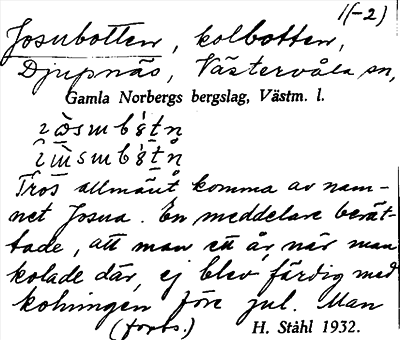 1(-2)
Josubotten, kolbotten,
Djupnäs, Västervåla sn,
Gamla Norbergs bergslag, Västm. l.
Tros allmänt komma av nam-
net Josua. En meddelare berät-
tade, att man ett år, när man
kolade där, ej blev färdig med
kolningen före jul. Man
(forts.) H. Ståhl 1932.